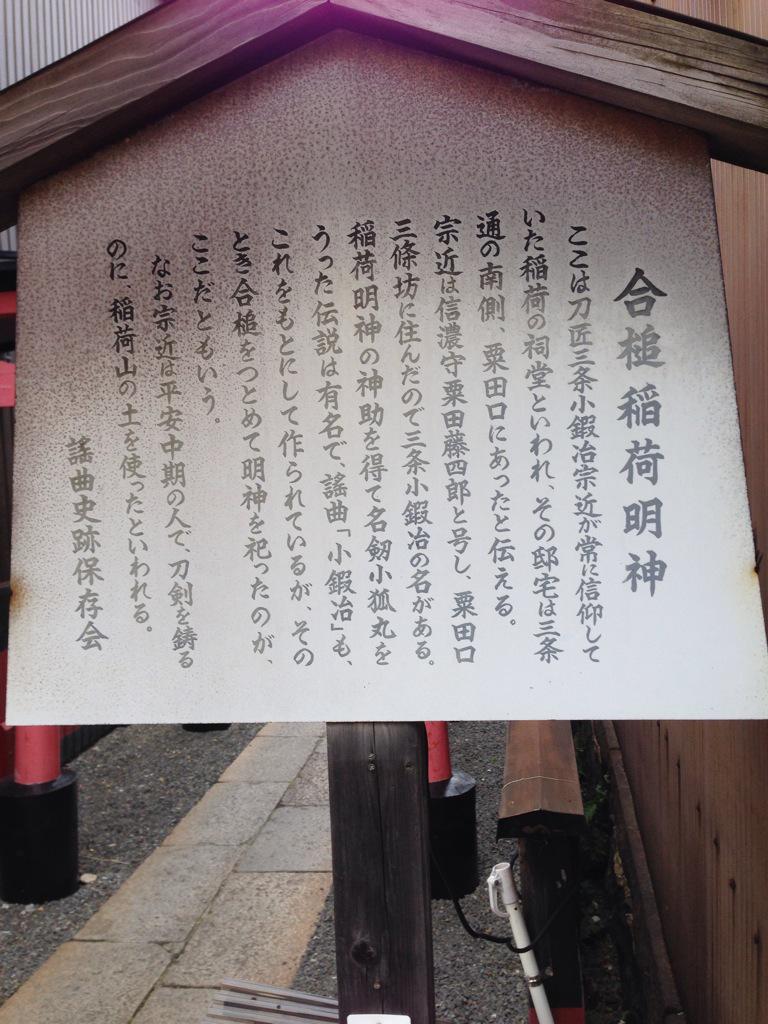 合槌稲荷明神
ここは刀匠三条小鍛冶宗近が常に信仰して
いた稲荷の祠堂といわれ、その邸宅は三条
通の南側、粟田口にあったと伝える。
宗近は信濃守粟田藤四郎と号し、粟田口
三條坊に住んだので三条小鍛冶の名がある。
稲荷明神の神助を得て名剱小狐丸を
うった伝説は有名で、謡曲「小鍛冶」も、
これをもとにして作られているが、その
とき合槌をつとめて明神を祀ったのが、
ここだともいう。
なお宗近は平安中期の人で、刀剣を鋳る
のに、稲荷山の土を使ったといわれる。
謡曲史跡保存会